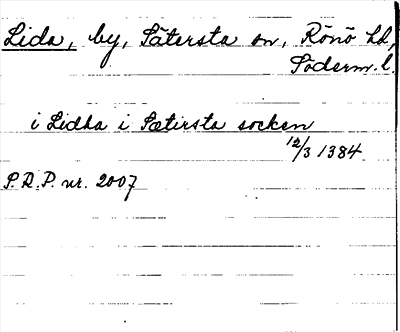 Lida, by, Sätersta sn, Rönö hd,
Söderm. l.
i Lidha i Sætirsta socken
12/3 1384
S.R.P. nr. 2007